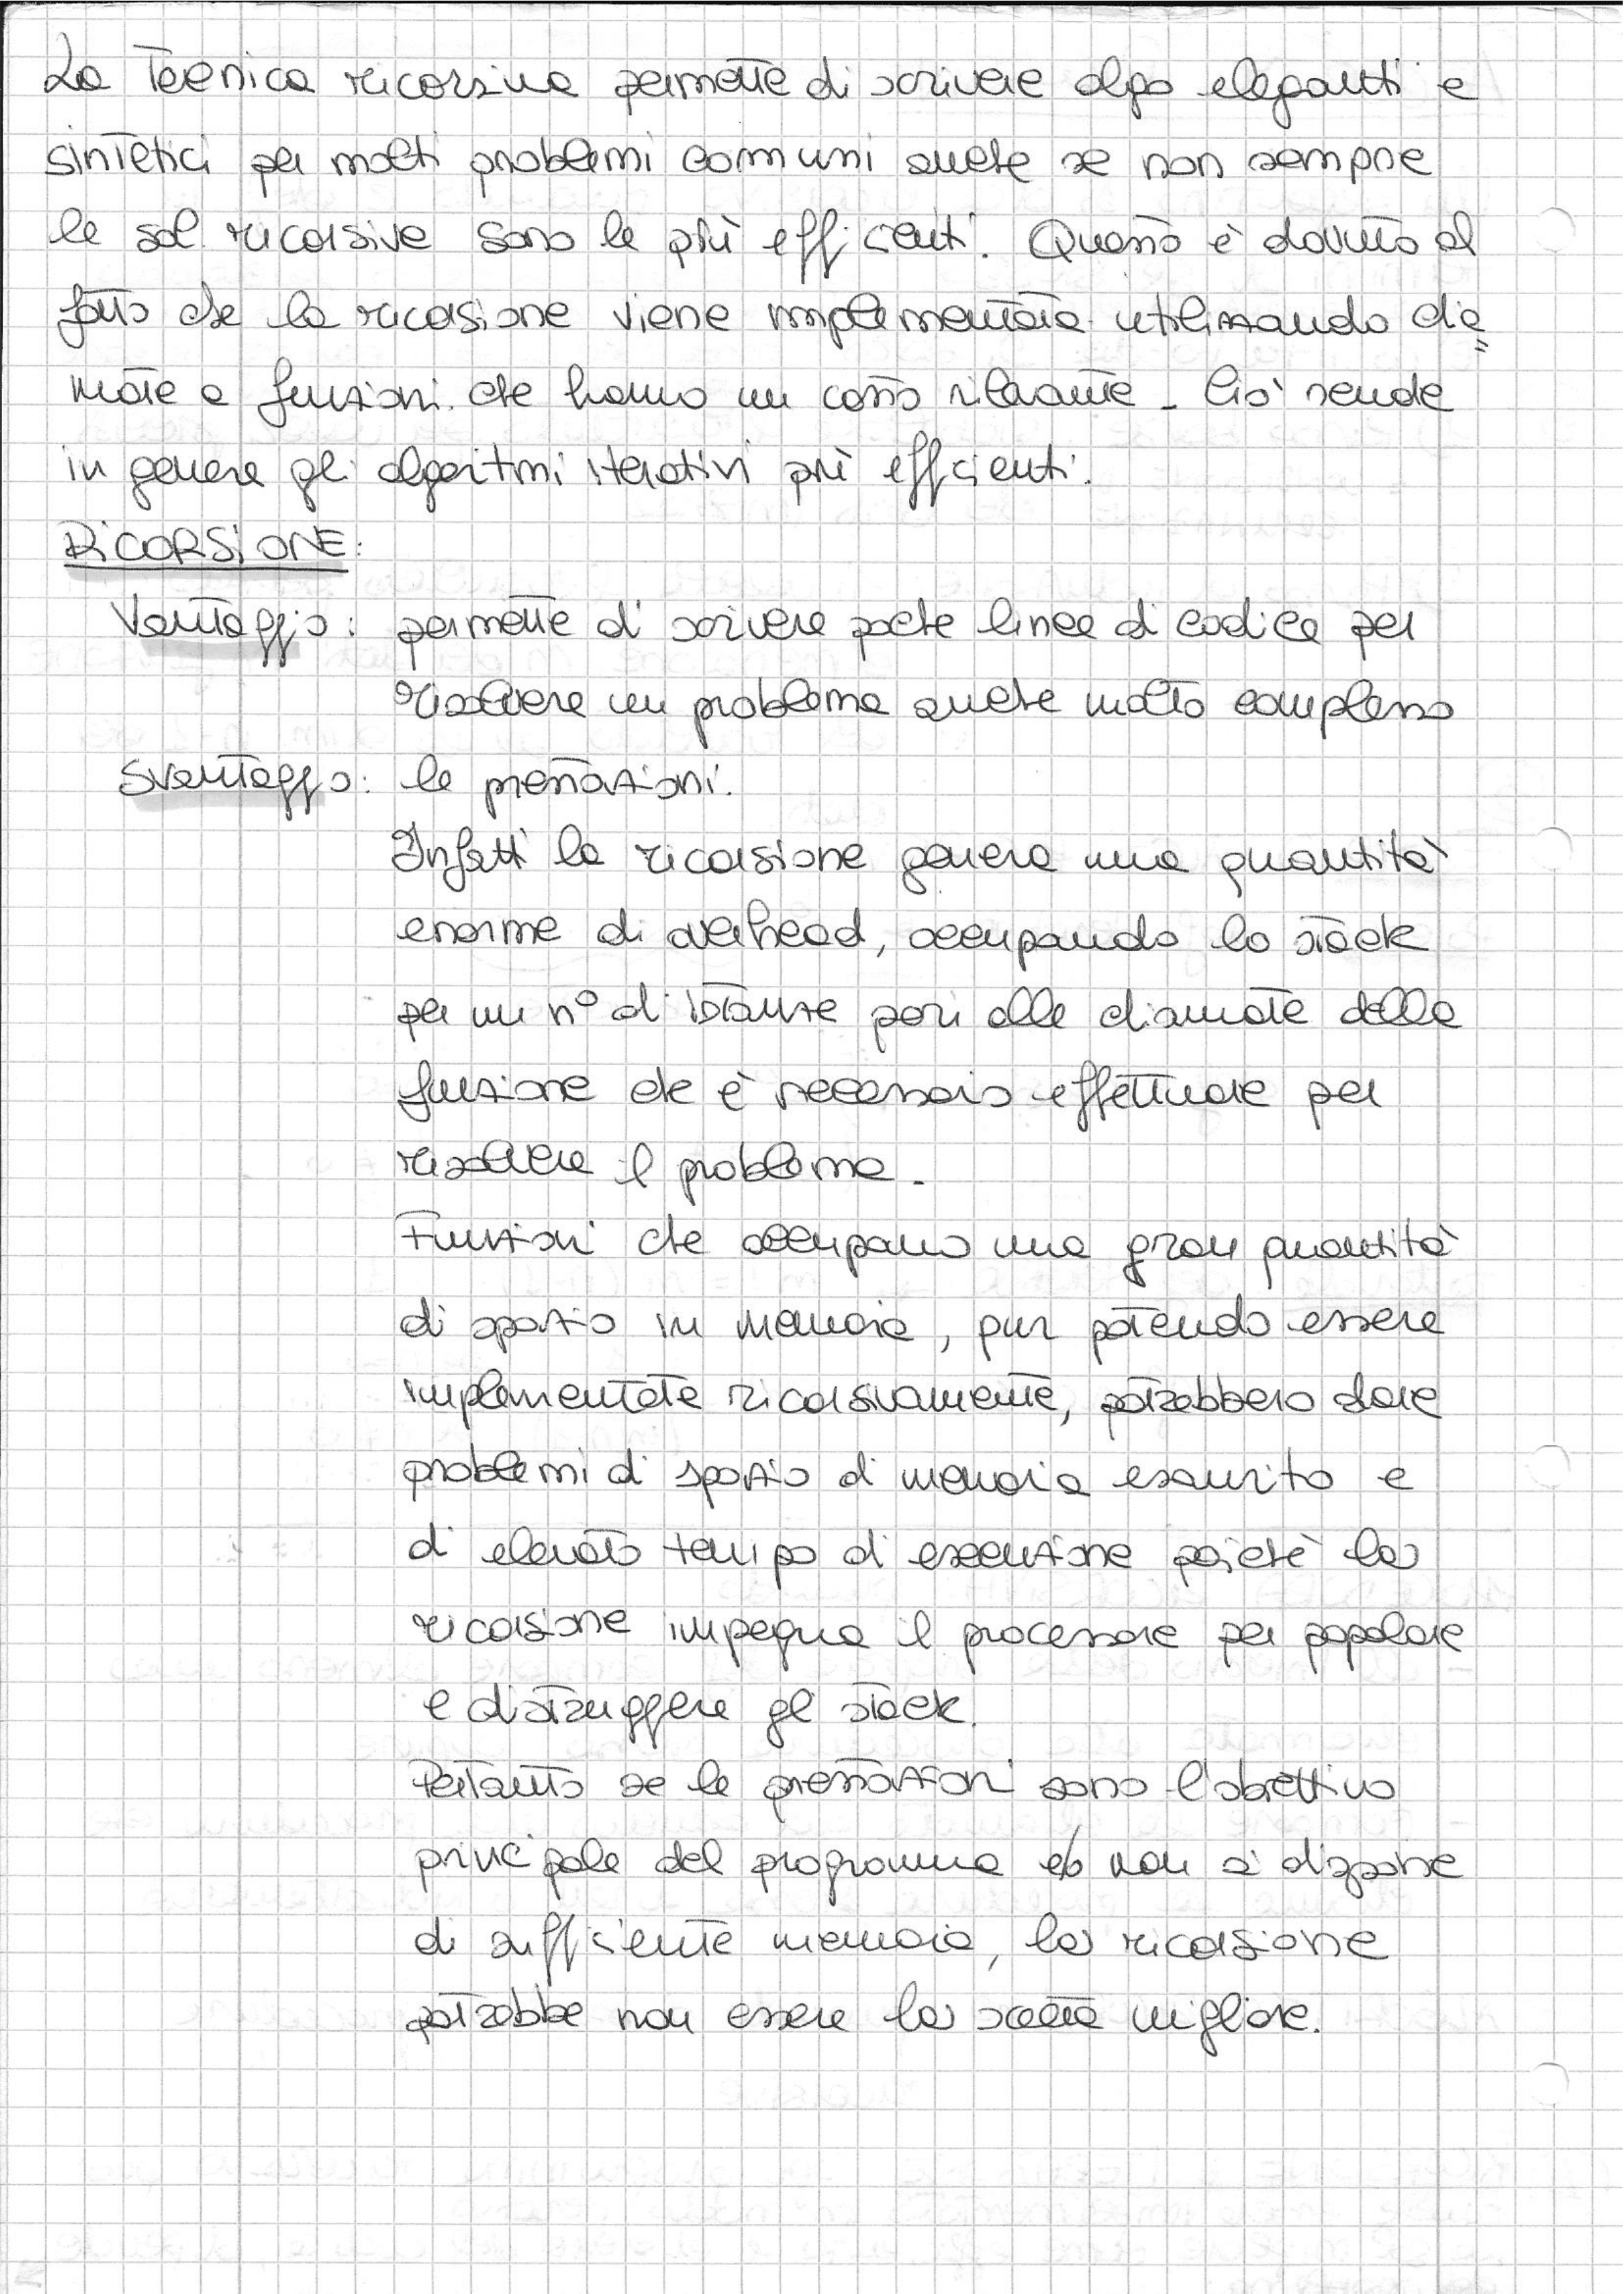 La Tecnica ricorsiva permette di scrivere algo eleganti e
sintetici per molti problemi comuni anche se non sempre
le sol. ricorsive sono le più efficienti. Questo è dovuto al
fatto che la ricorsione viene implementata utilizzando chia=
mate a funzioni che hanno un costo rilevante - Ciò rende
in genere gli algoritmi iterativi più efficienti.
RICORSIONE:
Vantaggio: permette di scrivere poche linee di codice per
risolvere un problema anche molto complesso
Svantaggio: le prestazioni.
Infatti la ricorsione genera una quantità
enorme di overhead, occupando lo stack
per un n° di istanze pari alle chiamate della
funzione che è necessario effettuare per
risolvere il problema -
Funzioni che occupano una gran quantità
di spazio in memoria, pur potendo essere
implementate ricorsivamente, potrebbero dare
problemi di spazio di memoria esaurito e
di elevato tempo di esecuzione poiché la
ricorsione impegna il processore per popolare
e distruggere gli stack.
Pertanto se le prestazioni sono l'obiettivo
principale del programma e/o non si dispone
di sufficiente memoria, la ricorsione
potrebbe non essere la scelta migliore.